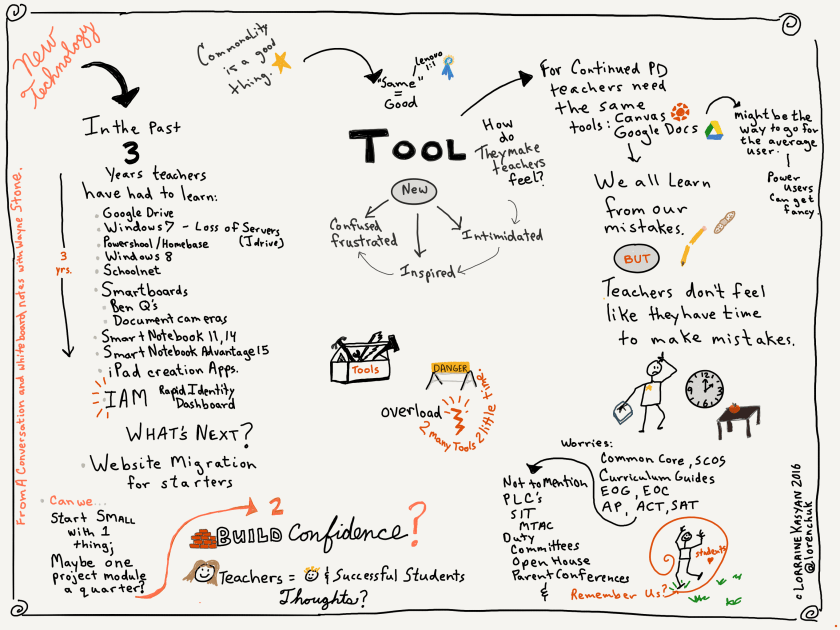 New
Technology
In the Past
3
Years teachers
have had to learn:
Google Drive
Windows 7 - Loss of Servers
(J drive)
Powershool/Homebase
Windows 8
Schoolnet
Smartboards
Ben Q's
Document cameras
Smart Notebook 11, 14
Smart Notebook Advantage 15
iPad creation Apps.
IAM Rapid Identity
Dashboard
3
yrs.
WHAT'S NEXT?
Website Migration
for starters
Can we...
Start SMALL
with 1
thing;
Maybe one
project module
a quarter?
2
BUILD Confidence?
Teachers = & Successful Students
Thoughts?
From A Conversation and whiteboard notes with Wayne Stone.
Commonality
is a good
thing.
Lenovo
1:1
"Same"
=
Good
TOOL
New
Confused
frustrated
Inspired
Intimidated
How
do
They make
teachers
feel?
Tools
DANGER
overload
2 many Tools 2 little time.
For Continued PD
teachers need
the same
tools: Canvas
Google Docs
might be the
way to go for
the average
user.
Power
users
can get
fancy.
We all Learn
from our
mistakes.
BUT
Teachers don't feel
like they have time
to make mistakes.
12
3
6
9
Worries:
Common Core, SCOS
Curriculum Guides
EOG, EOC
AP, ACT, SAT
Not to Mention
PLC's
SIT
MTAC
Duty
Committees
Open House
Parent Conferences
& Remember Us?
students
© LORRAINE KASYAN 2016
@lorenchuk